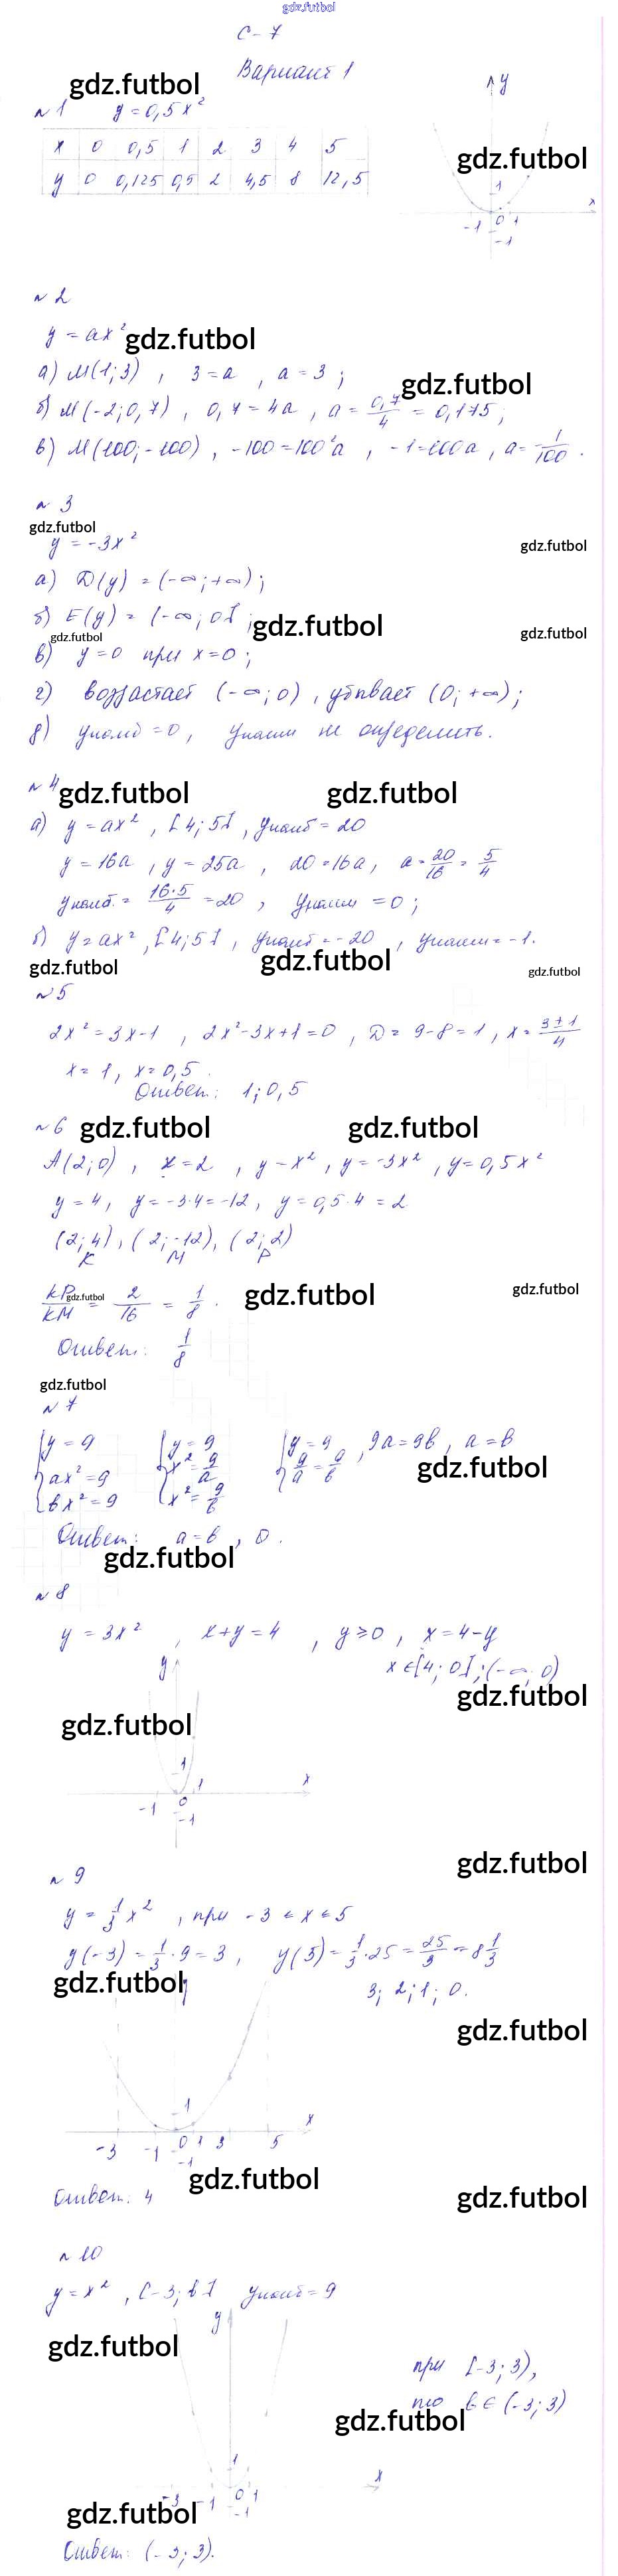 gdz.futbol
С-7
Вариант 1
gdz.futbol
№1 y = 0,5x²
x 0 0,5 1 2 3 4 5
y 0 0,125 0,5 2 4,5 8 12,5
gdz.futbol
y
1
x
-1 0 1
-1
№2
y = ax²
gdz.futbol
а) M(1; 3) , 3 = a , a = 3 ;
gdz.futbol
б) M(-2; 0,7) , 0,7 = 4a , a = 0,7/4 = 0,175 ;
в) M(100; -100) , -100 = 100²a , -1 = 100a , a = 1/100 .
№3
gdz.futbol
y = -3x²
gdz.futbol
а) D(y) = (-∞; +∞) ;
б) E(y) = (-∞; 0] ;
gdz.futbol
gdz.futbol
gdz.futbol
в) y = 0 при x = 0 ;
г) возрастает (-∞; 0) , убывает (0; +∞) ;
д) yнаиб = 0 , yнаим не определить.
№4
gdz.futbol
gdz.futbol
а) y = ax² , [4; 5] , yнаиб = 20
y = 16a , y = 25a , 20 = 16a , a = 20/16 = 5/4
yнаиб. = 16·5/4 = 20 , yнаим = 0 ;
б) y = ax² , [4; 5] , yнаиб = -20 , yнаим = -1.
gdz.futbol
gdz.futbol
gdz.futbol
№5
2x² = 3x-1 , 2x²-3x+1 = 0 , D = 9-8 = 1 , x = 3±1/4
x = 1 , x = 0,5 .
Ответ: 1; 0,5
№6
gdz.futbol
gdz.futbol
A(2; 0) , x = 2 , y - x² , y = -3x² , y = 0,5x²
y = 4 , y = -3·4 = -12 , y = 0,5·4 = 2
(2; 4) , (2; -12) , (2; 2)
K M P
KP/KM = 2/16 = 1/8 .
gdz.futbol
gdz.futbol
gdz.futbol
Ответ: 1/8
gdz.futbol
№7
{y = 9 {y = 9 {y = 9 , 9a = 9b , a = b
ax² = 9 x² = 9/a 9/a = 9/b
bx² = 9 x² = 9/b
gdz.futbol
Ответ: a = b , 0 .
gdz.futbol
№8
y = 3x² , x+y = 4 , y ≥ 0 , x = 4-y
x ∈ [4; 0] ; (-∞; 0)
gdz.futbol
y
gdz.futbol
1
x
-1 0 1
-1
gdz.futbol
№9
y = 1/3 x² , при -3 ≤ x ≤ 5
y(-3) = 1/3 · 9 = 3 , y(5) = 1/3 · 25 = 25/3 = 8 1/3
gdz.futbol
3; 2; 1; 0.
gdz.futbol
1
x
-3 -1 0 1 3 5
-1
gdz.futbol
Ответ: 4
gdz.futbol
№10
y = x² , [-3; b] yнаиб = 9
y
gdz.futbol
при [-3; 3),
то b ∈ (-3; 3)
gdz.futbol
1
x
-3 -1 0 1
-1
gdz.futbol
Ответ: (-3; 3).